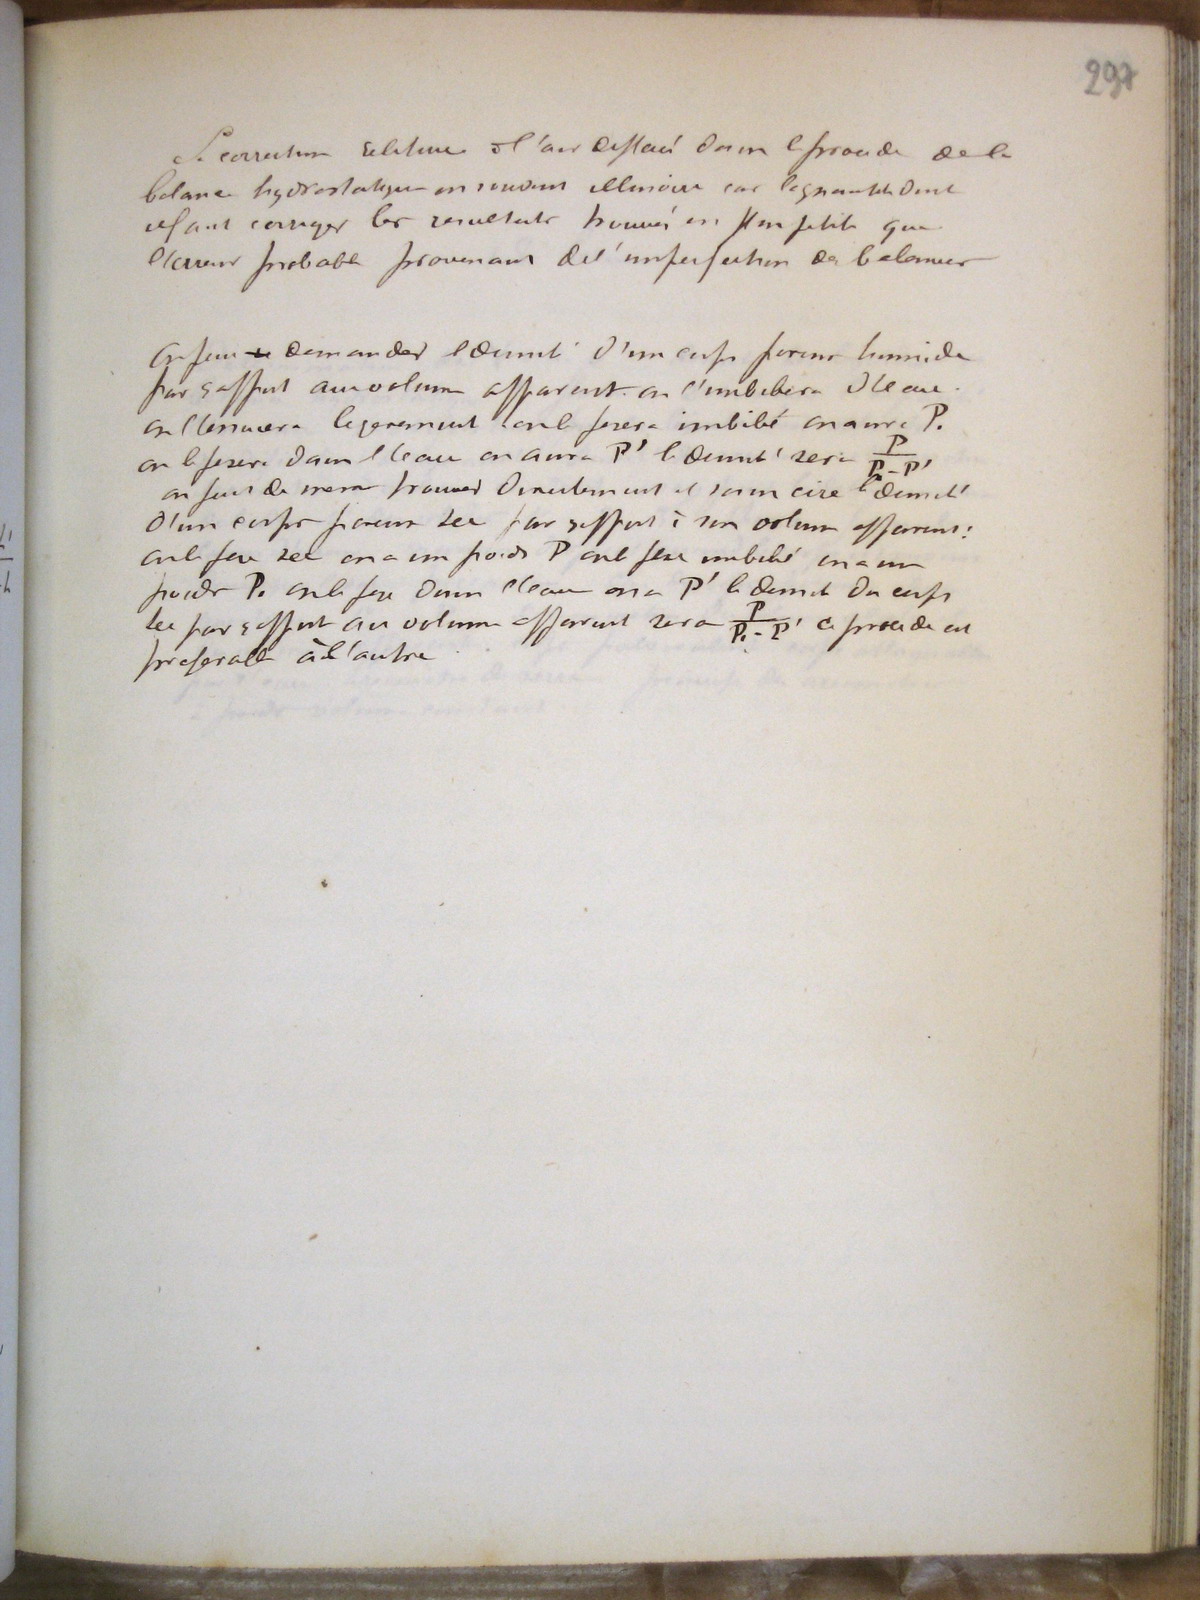 297
La correction relative à l'air deplacé dans le procede de la
balance hydrostatique est souvent illusoire car la quantité dont
il faut corriger les resultats trouvés est plus petite que
l'erreur probable provenant de l'imperfection des balances
On peut demander la densité d'un corps poreux humide
par rapport au volume apparent. on l'imbibera d'eau.
on l'essuiera legerement on le pesera imbibé on aura P.
on le pesera dans l'eau on aura P' la densité sera P / P - P'
on peut de meme trouver directement et sans cire la densité
d'un corps poreux sec par rapport à son volume apparent:
on le pese sec on a un poids P on le pese imbibé on a un
poids P. on le pese dans l'eau on a P' la densité du corps
sec par rapport au volume apparent sera P / P. - P' ce procede est
preferable à l'autre